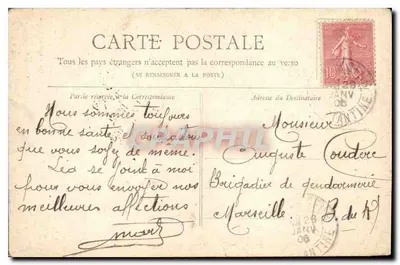 CARTE POSTALE
Tous les pays étrangers n'acceptent pas la correspondance au verso
(SE RENSEIGNER A LA POSTE)
Partie réservée à la Correspondance
Adresse du Destinataire
10
JANV
06
Nous sommes toujours
en bonne santé et
que vous soyez de même.
Léa se joint à moi
pour vous envoyer nos
meilleures affections
Monsieur
Auguste Coudere
Brigadier de gendarmerie
Marseille. B. du R.
26
JANV
06